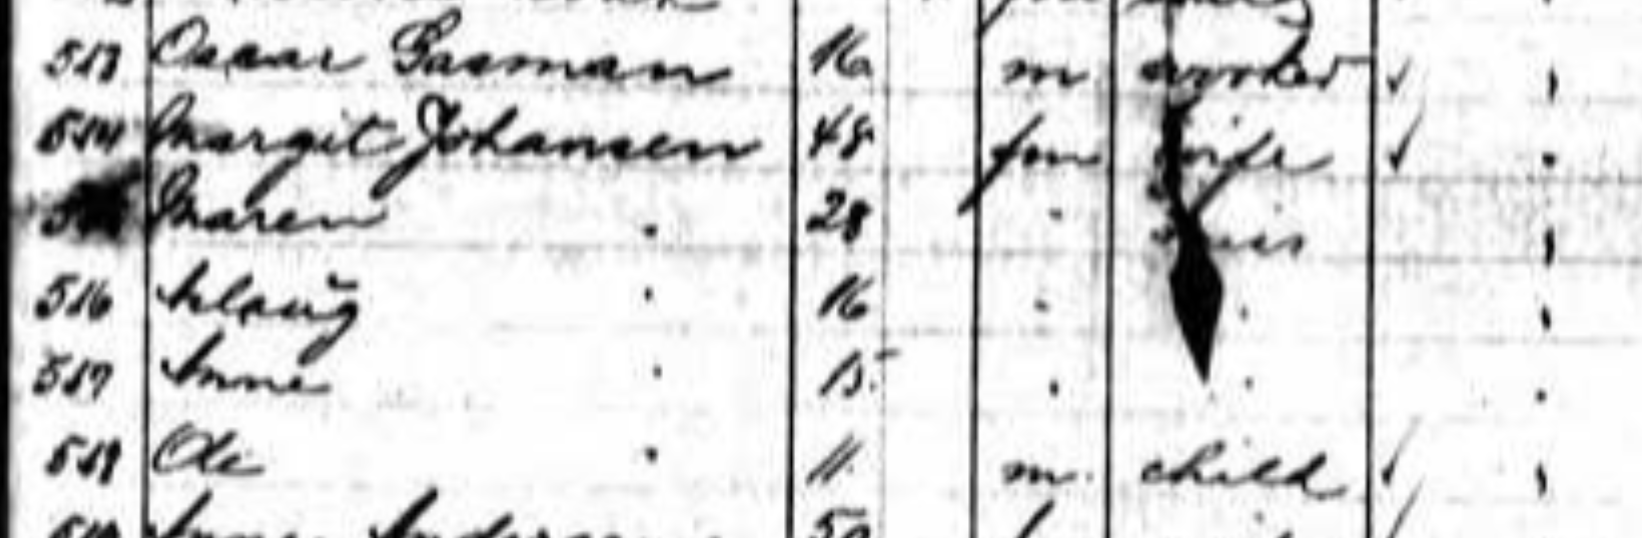 513 Oscar Gasman 16 m worker ✓
514 Margit Johansen 48 fm wife ✓
Maren " 28 " Miss
516 Aslaug " 16 " "
517 Anne " 15 " "
518 Ole " 11 m. child ✓
Anne 50